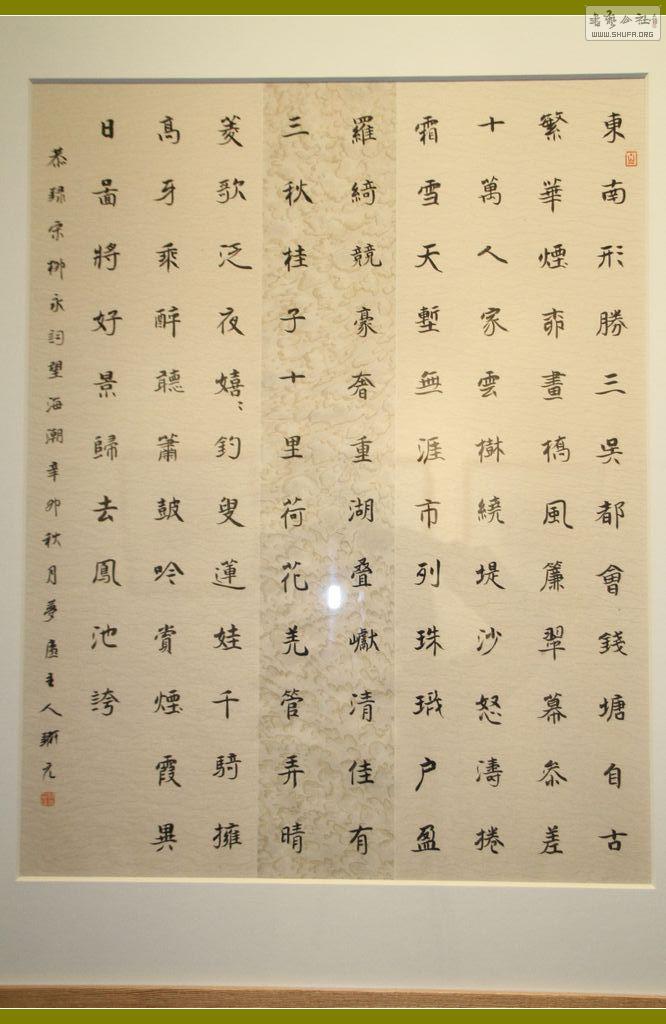 東南形勝三吳都會錢塘自古
繁華煙柰畫橋風簾翠幕叅差
十萬人家雲樹繞堤沙怒濤捲
霜雪天塹無涯市列珠璣户盈
羅綺競豪奢重湖叠巘清佳有
三秋桂子十里荷花羌管弄晴
菱歌泛夜嬉〻釣叟蓮娃千騎擁
高牙乘醉聽簫鼓吟賞煙霞異
日圖將好景歸去鳳池誇
恭錄宋柳永詞望海潮辛卯秋月夢廬主人
WWW.SHUFA.ORG